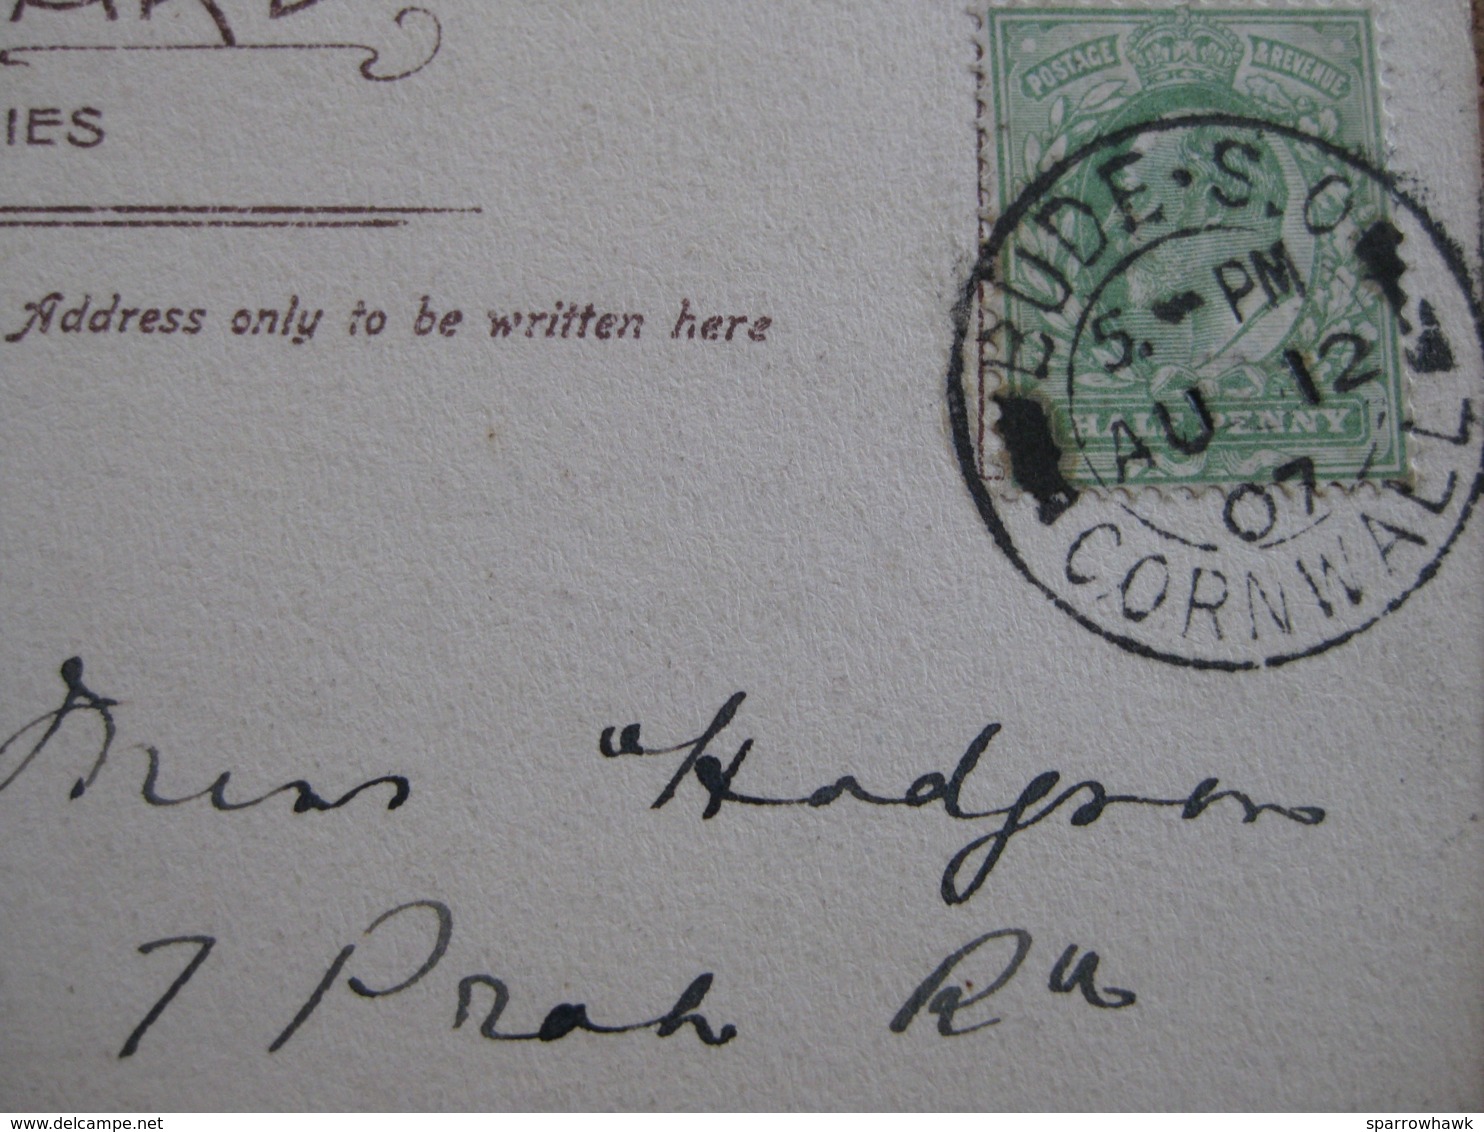 IES
Address only to be written here
POSTAGE & REVENUE
HALF PENNY
BUDE · S.O
5. - PM
AU 12
07
CORNWALL
Miss "Hodgson
7 Prah Rd
delcampe.net
sparrowhawk